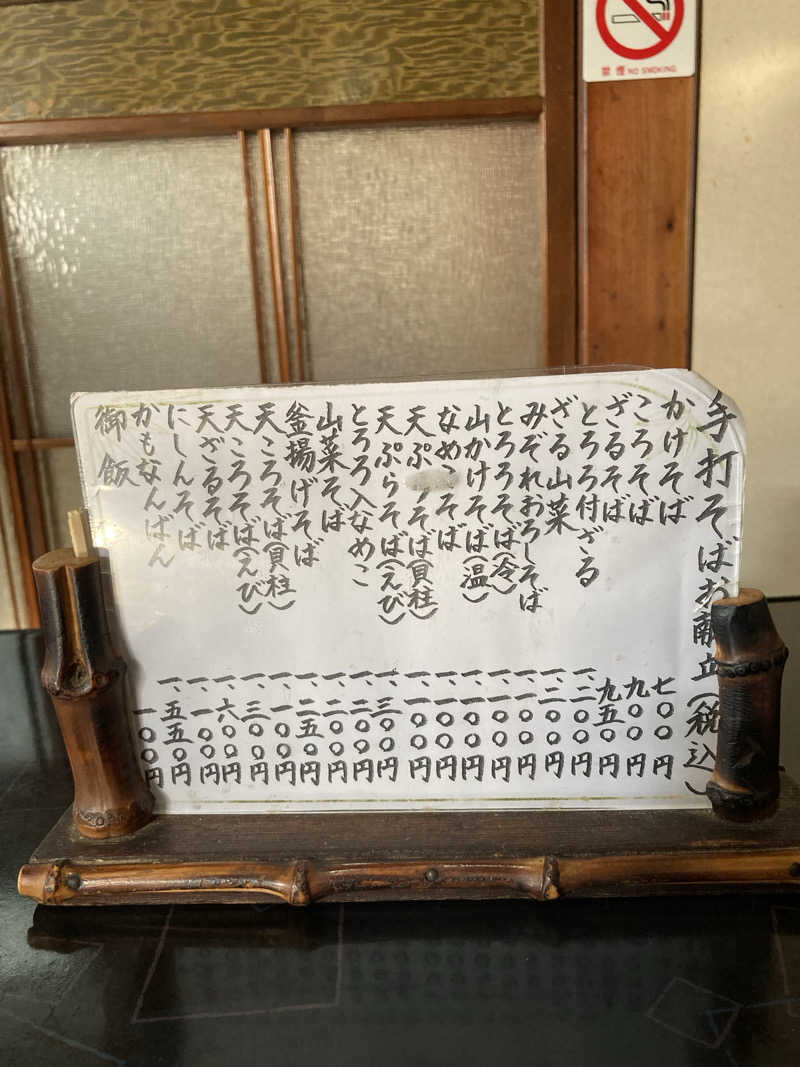 手打そばお献立(税込)
かけそば 七〇〇円
ころそば 九〇〇円
ざるそば 九五〇円
とろろ付ざる 一、二〇〇円
ざる山菜 一、二〇〇円
みぞれおろしそば 一、一〇〇円
とろろそば(冷) 一、一〇〇円
山かけそば(温) 一、一〇〇円
なめこそば 一、一〇〇円
天ぷらそば(貝柱) 一、一〇〇円
天ぷらそば(えび) 一、三〇〇円
とろろ入なめこ 一、二〇〇円
山菜そば 一、二〇〇円
釜揚げそば 一、二五〇円
天ころそば(貝柱) 一、一〇〇円
天ころそば(えび) 一、三〇〇円
天ざるそば 一、六〇〇円
にしんそば 一、一〇〇円
かもなんばん 一、五五〇円
御飯 一〇〇円
禁煙 NO SMOKING